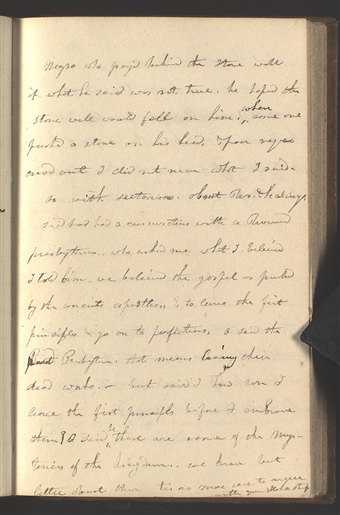 Negro who pray'd behind the stone wall
if what he said was not true. he hop'd the
stone wall would fall on him; when some one
pushd a stone on his head. upon negro
cried out I did not mean what I said-
so with sectarians. about Rev. & healing,
said had had a conversation with a Reverend
presbyterian. who asked me what I believd
I told him. we believe the gospel as preachd
by the ancient apostles, & to leave the first
principles & go on to perfection, o said the
Presbyterian. that means leaving their
dead works. - but said I how can I
leave the first principles before I embrace
them? O said he, there are some of the mys-
teries of the kingdom. we know but
little about them tis no more use to argue
with you